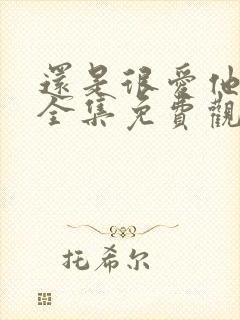 還是很愛他
全集免費觀
托希尔